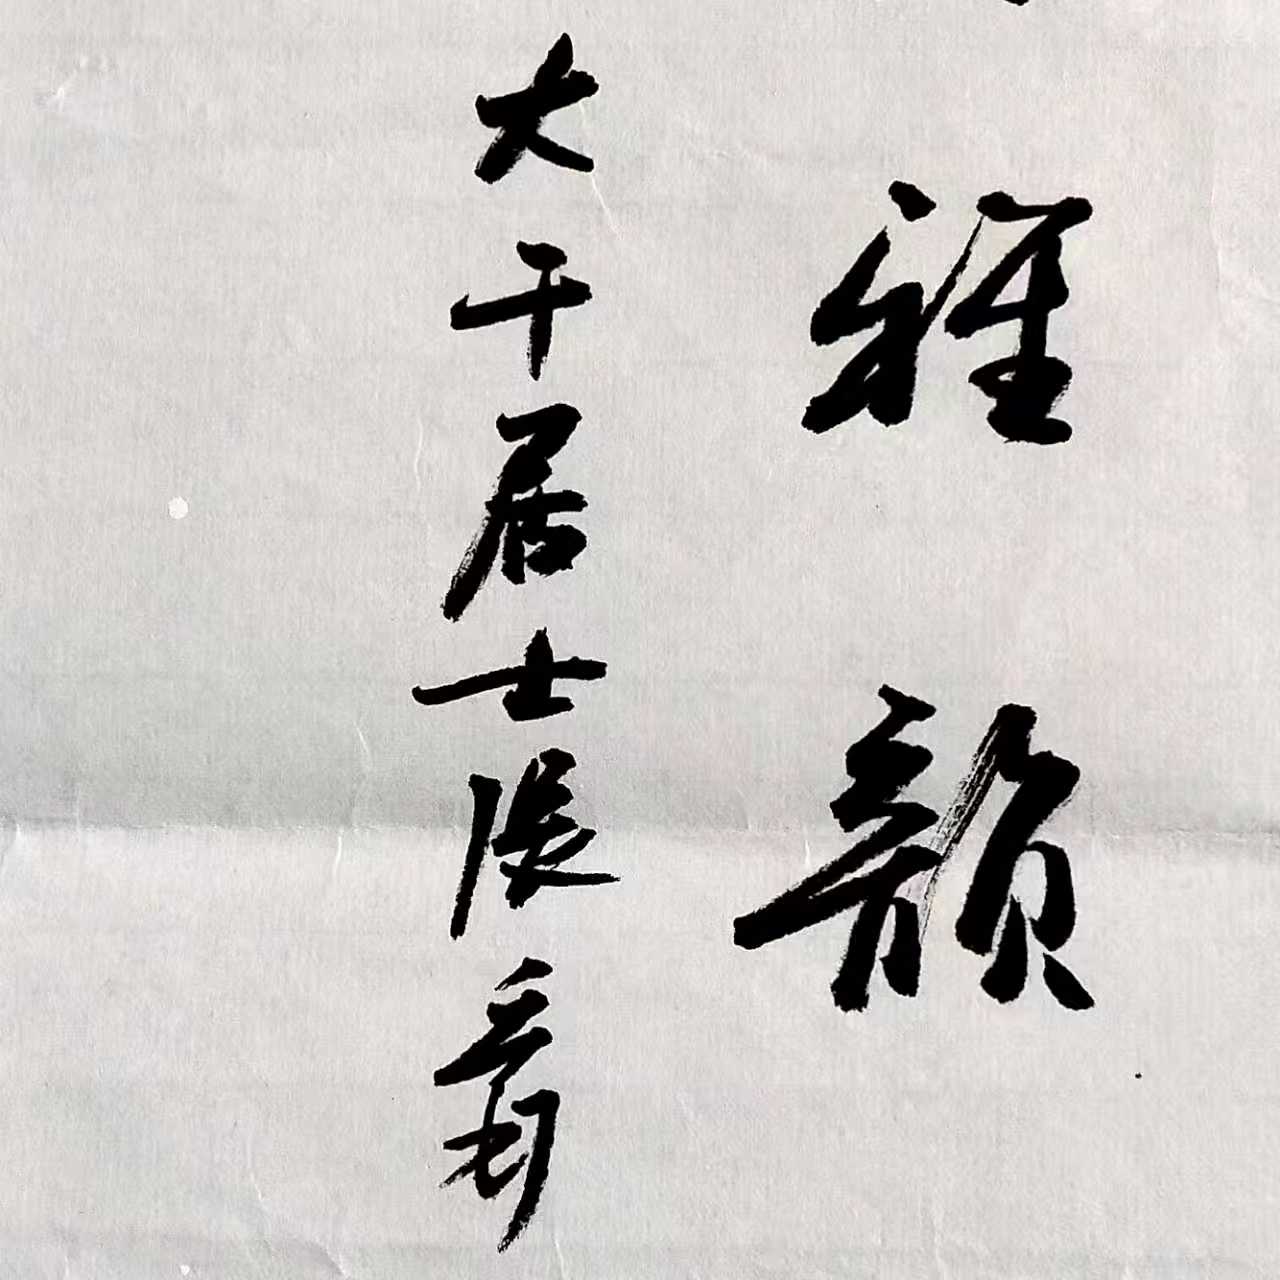 雅韻
大千居士張爰